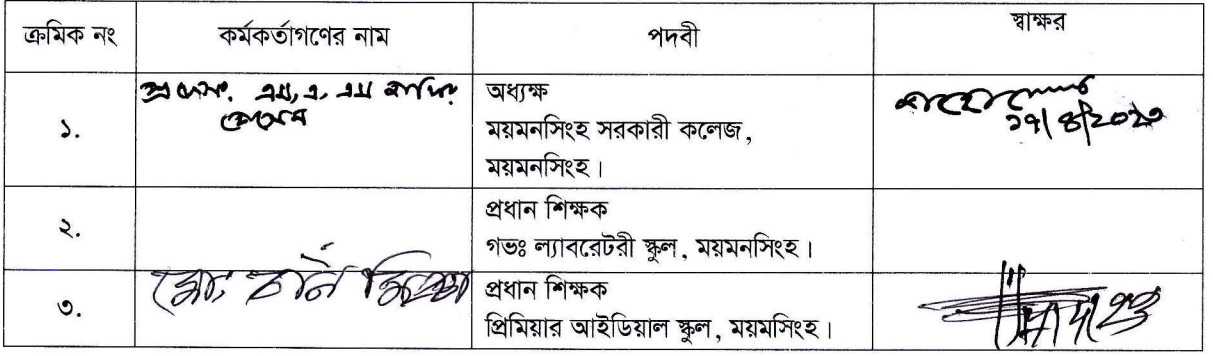 ক্রমিক নং কর্মকর্তাগণের নাম পদবী স্বাক্ষর
১. এম, এ, এম অধ্যক্ষ
ময়মনসিংহ সরকারী কলেজ,
ময়মনসিংহ।
২. প্রধান শিক্ষক
গভঃ ল্যাবরেটরী স্কুল, ময়মনসিংহ।
৩. মোঃ প্রধান শিক্ষক
প্রিমিয়ার আইডিয়াল স্কুল, ময়মসিংহ।